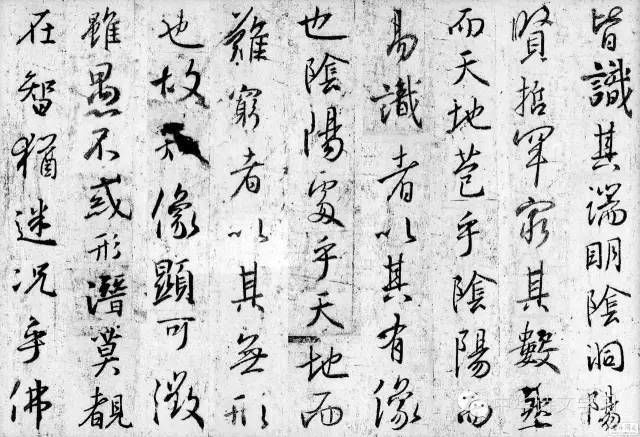 皆識其端明陰洞陽
賢哲罕窮其數然
而天地苞乎陰陽而
易識者以其有像
也陰陽處乎天地而
難窮者以其無形
也故像顯可徵
雖愚不惑形潛莫覩
在智猶迷況乎佛